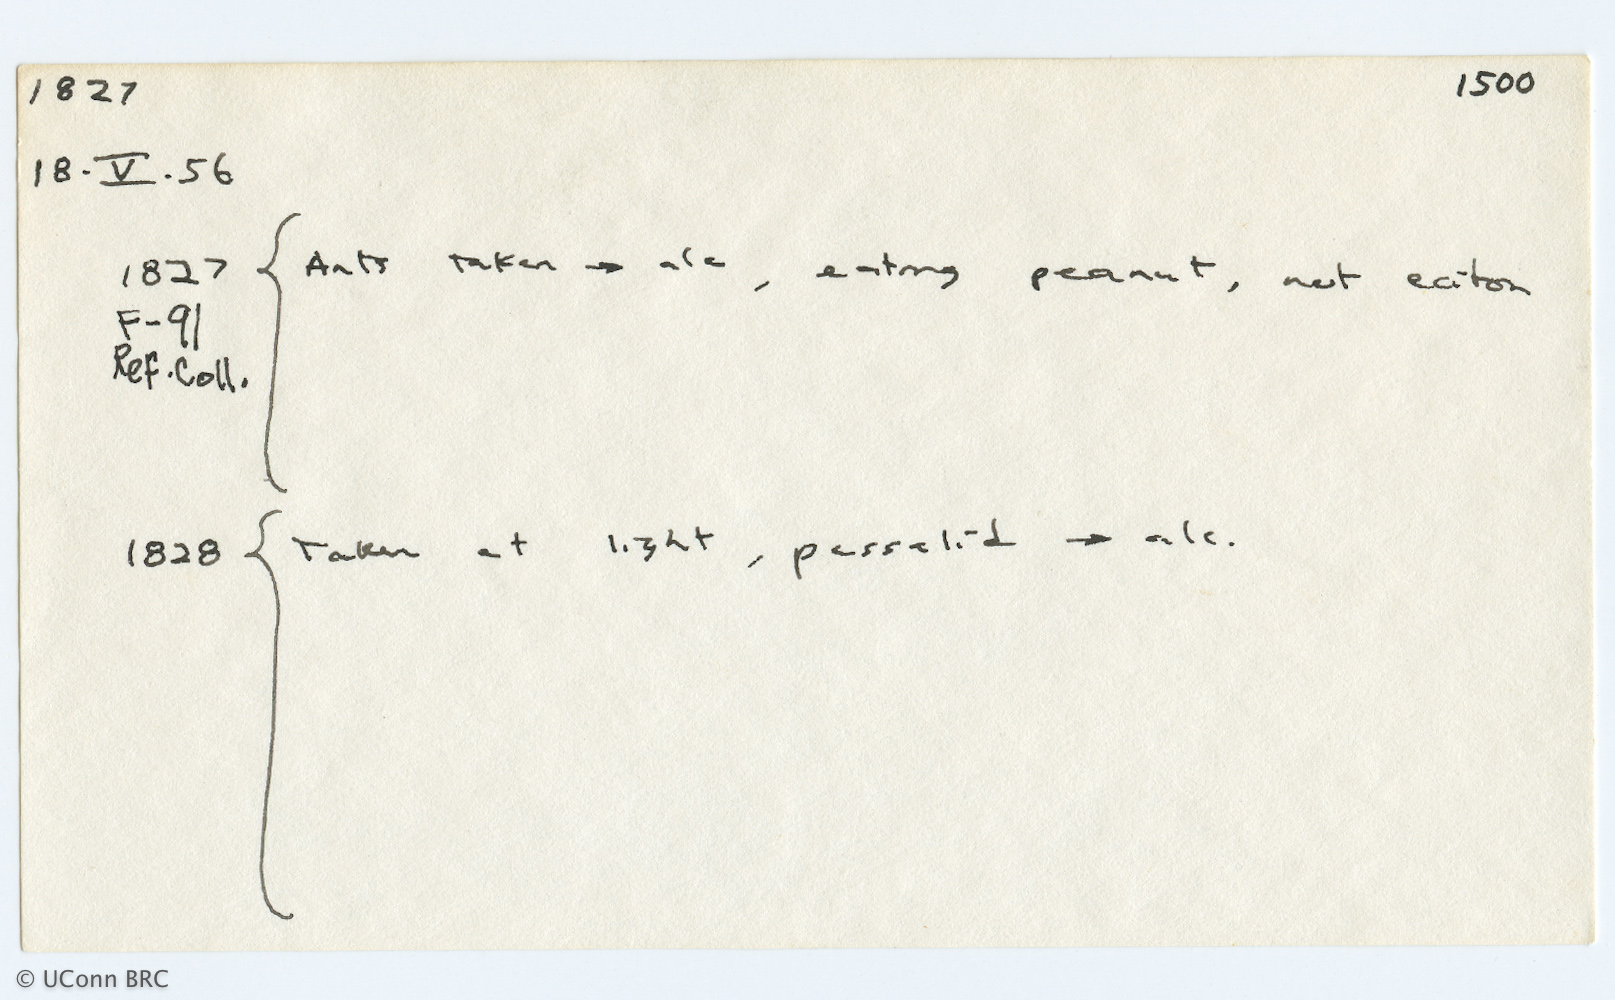 1827 1500
18.V.56
1827 { Ants taken → alc, eating peanut, not eciton
F-91
Ref. Coll.
1828 { Taken at light, passalid → alc.
© UConn BRC